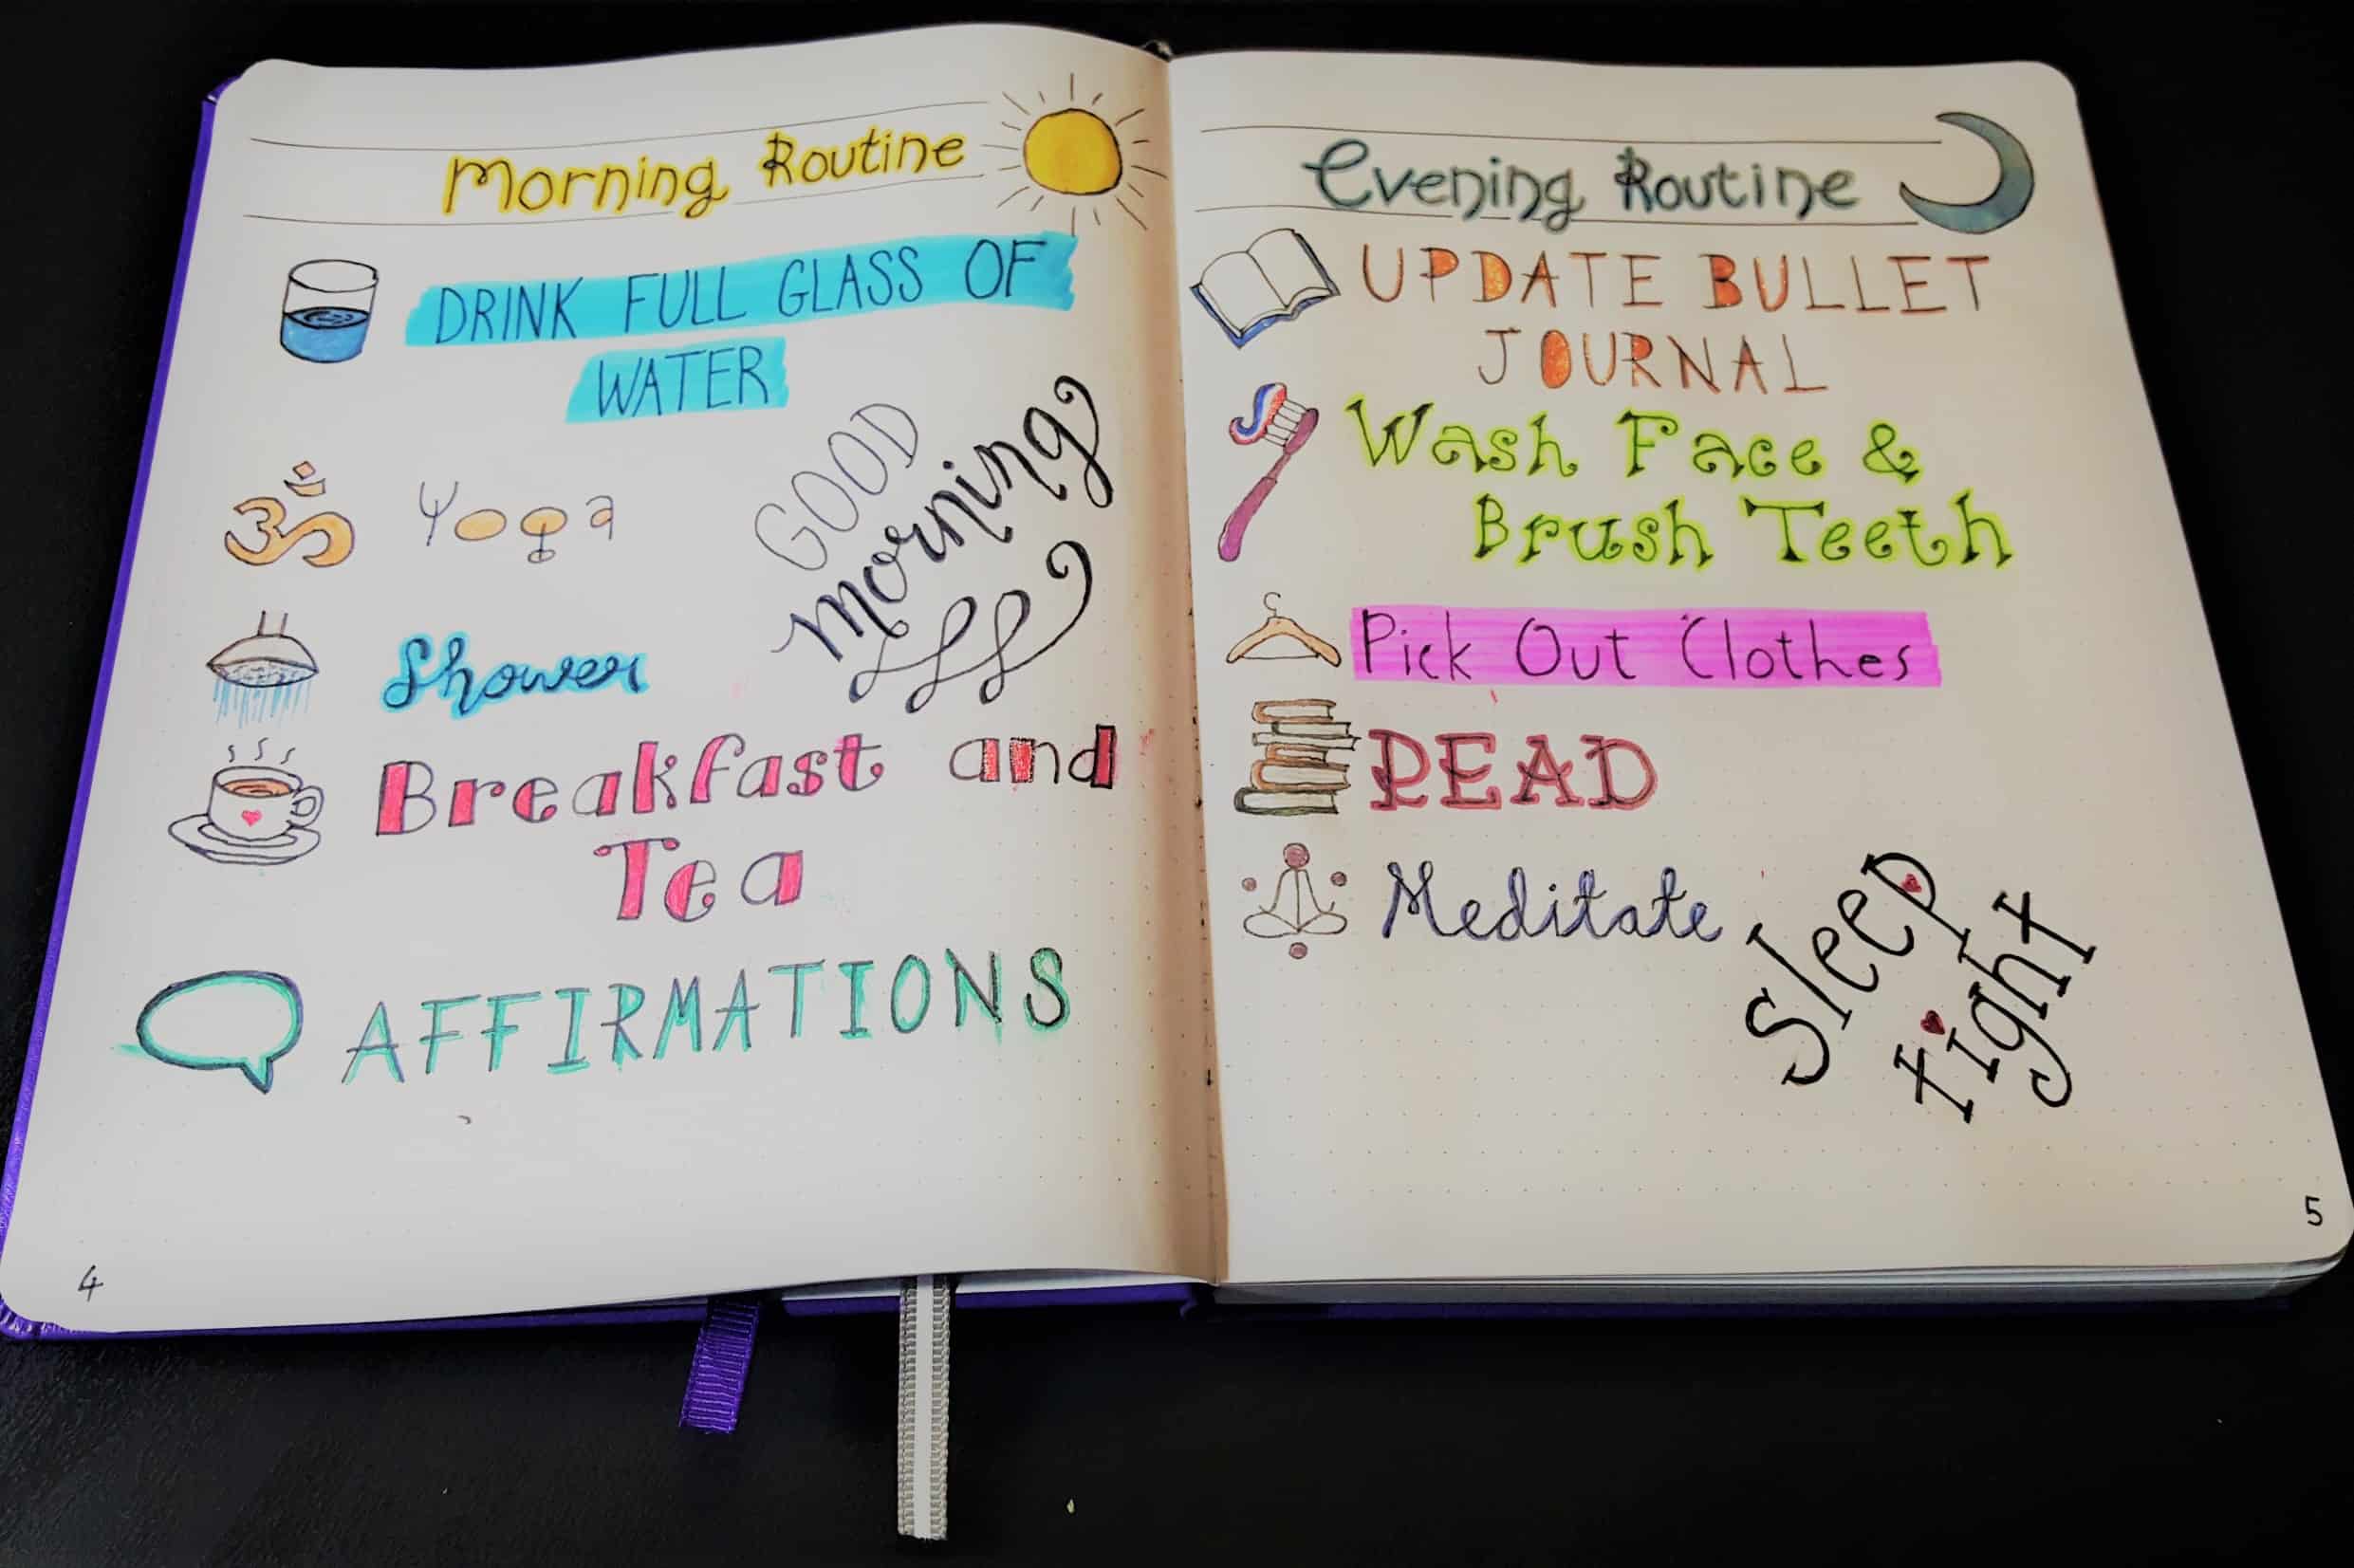 Morning Routine
DRINK FULL GLASS OF
WATER
Yoga
GOOD
morning
Shower
Breakfast and
Tea
AFFIRMATIONS
4
Evening Routine
UPDATE BULLET
JOURNAL
Wash Face &
Brush Teeth
Pick Out Clothes
READ
Meditate
Sleep
tight
5